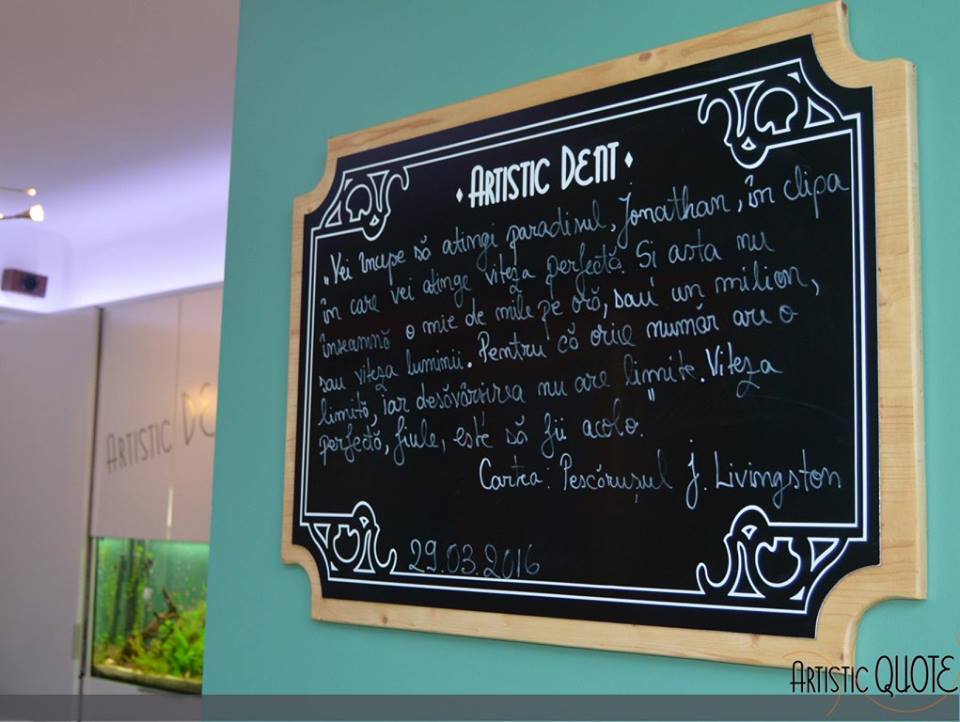 • ARTISTIC DENT •
„Vei începe să atingi paradisul, Jonathan, în clipa
în care vei atinge viteza perfectă. Si asta nu
înseamnă o mie de mile pe oră, sau un milion,
sau viteza luminii. Pentru că orice număr are o
limită, iar desăvârșirea nu are limite. Viteza
perfectă, fiule, este să fii acolo."
Cartea: Pescărușul J. Livingston
29.03.2016
ARTISTIC DE
ARTISTIC QUOTE